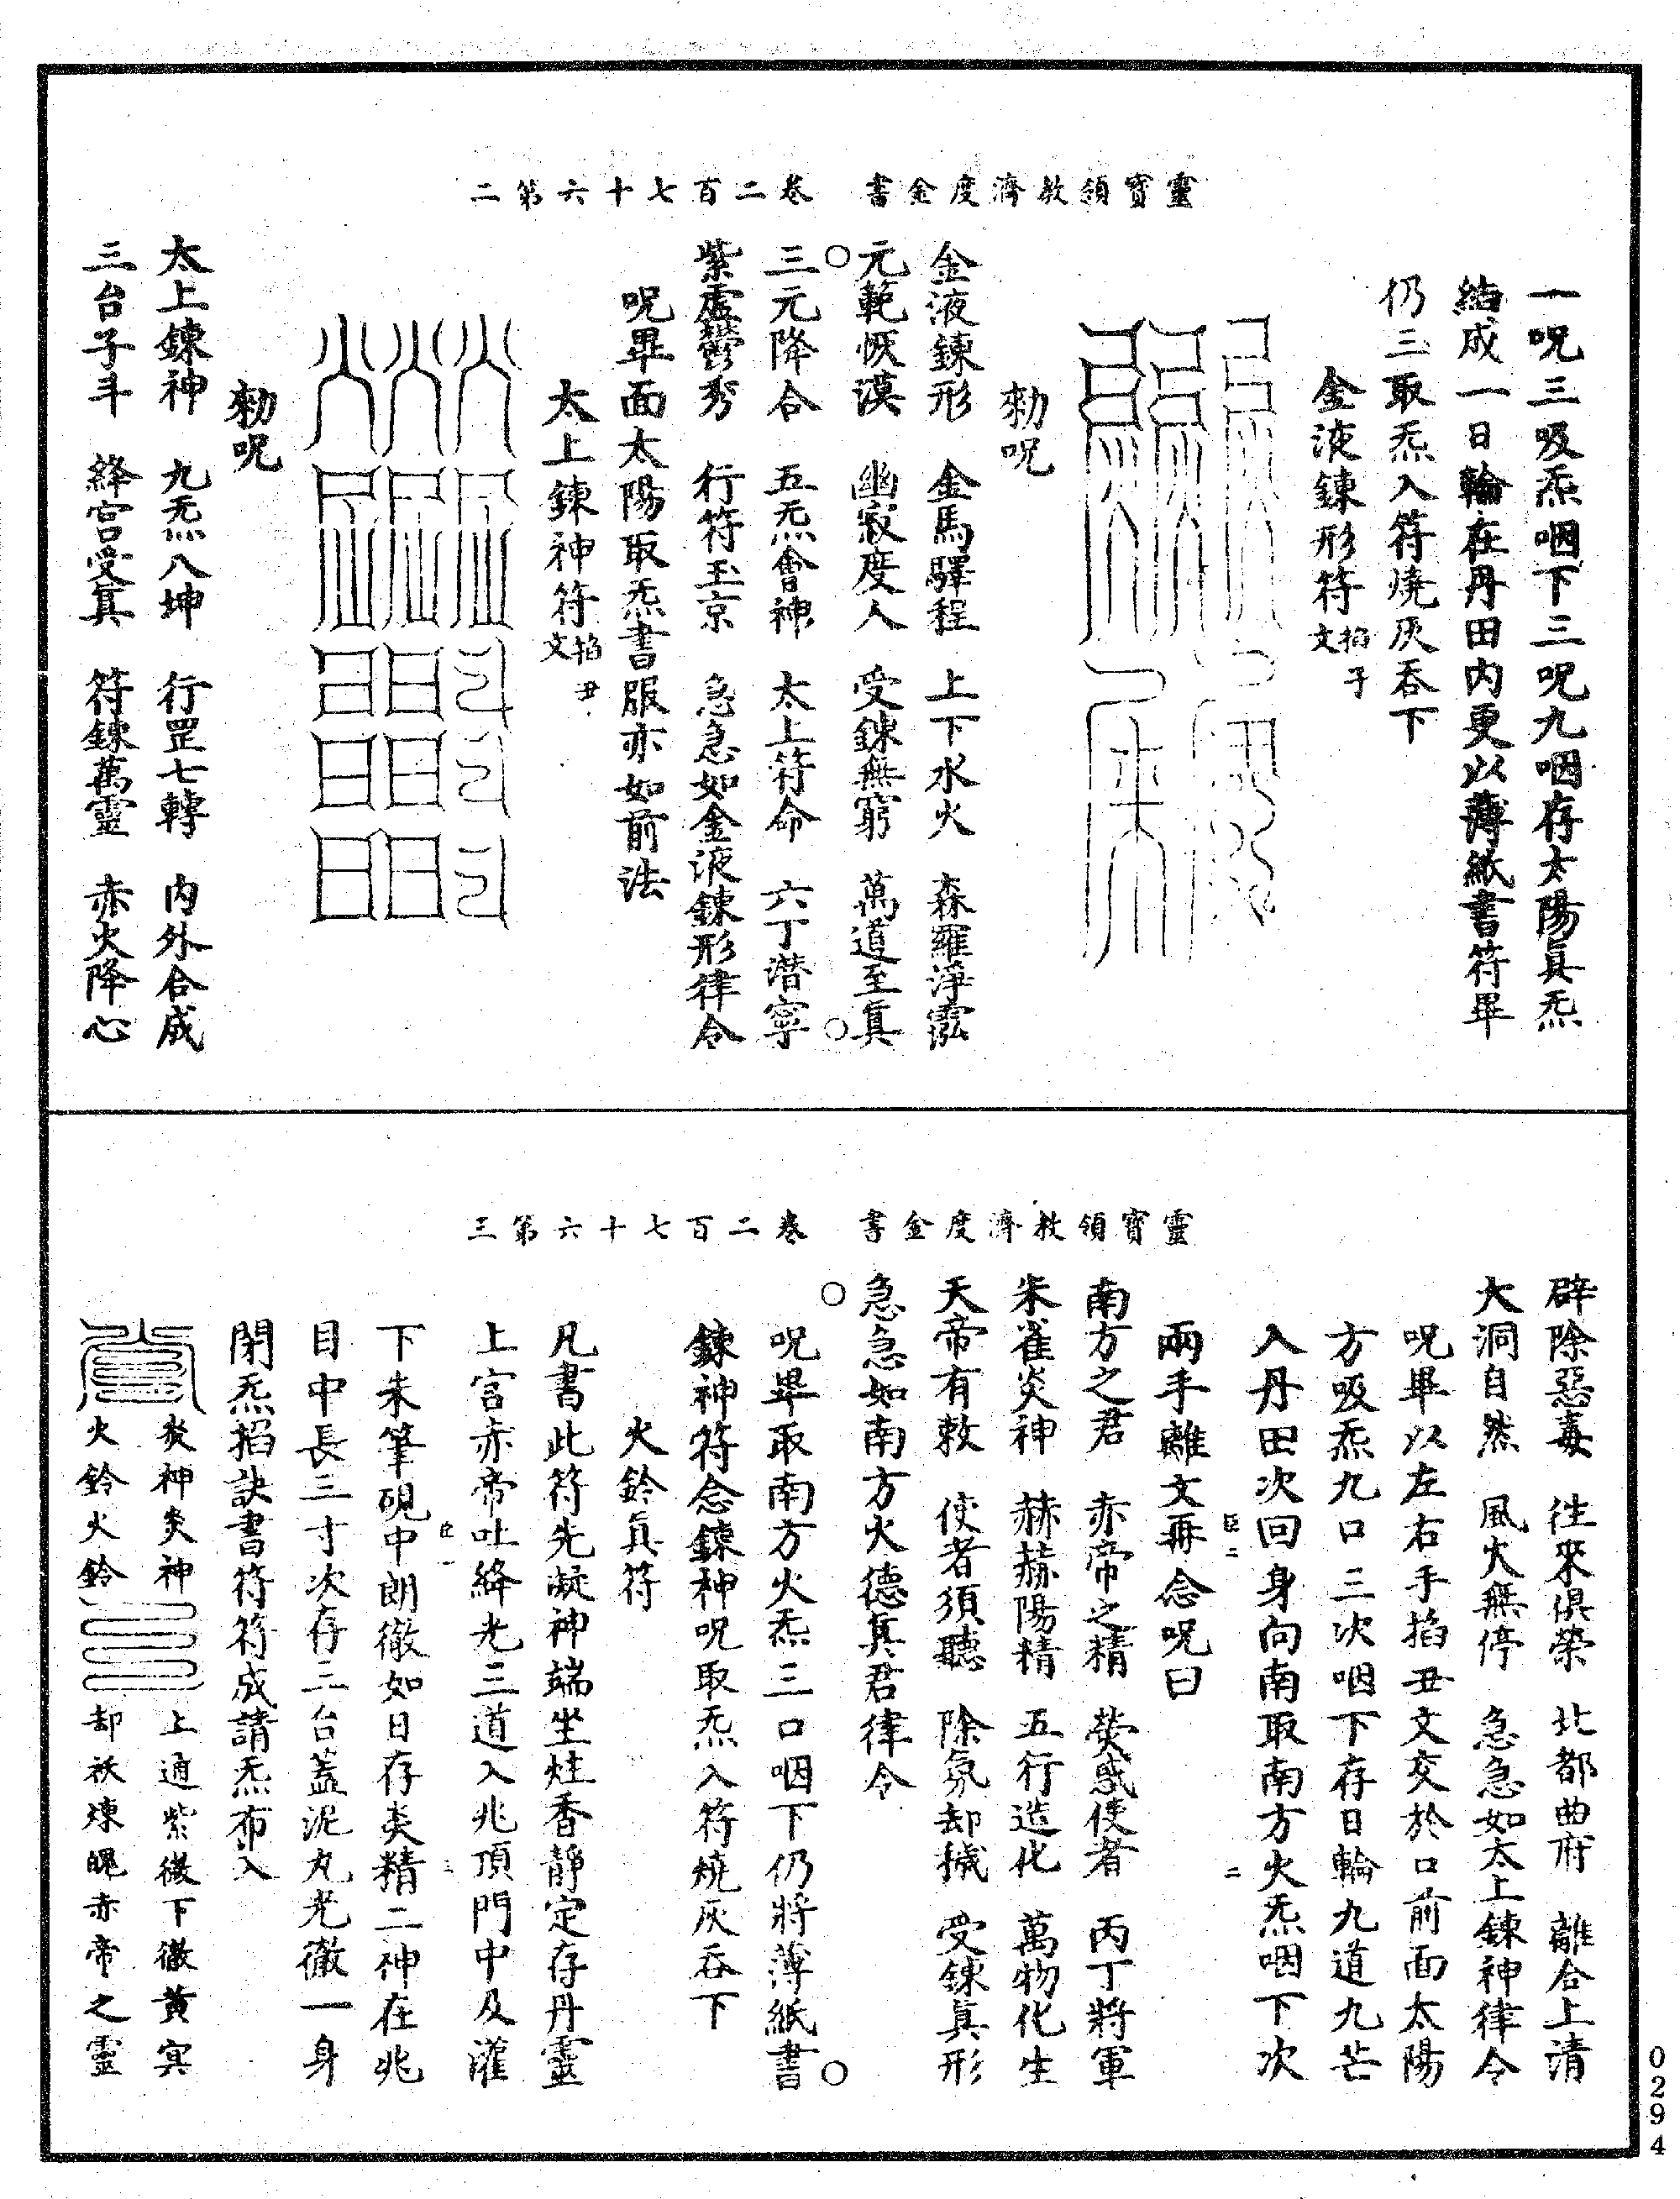 靈寶領教濟度金書　卷二百七十六第二
一呪三吸炁咽下三呪九咽存太陽眞炁
結成一日輪在丹田内更以薄紙書符畢
仍三取炁入符燒灰吞下
金液鍊形符掐子文
勑呪
金液鍊形　金馬驛程　上下水火　森羅淨霐
元範恢漠　幽寂度人　受鍊無窮　萬道至眞
三元降合　五炁會神　太上符命　六丁潛寧
紫虛鬱秀　行符玉京　急急如金液鍊形律令
呪畢面太陽取炁書服亦如前法
太上鍊神符掐丑文
勑呪
太上鍊神　九炁八坤　行罡七轉　内外合成
三台子斗　絳宫受眞　符鍊萬靈　赤火降心
靈寶領教濟度金書　卷二百七十六第三
辟除惡毒　往來俱榮　北都曲府　離合上清
大洞自然　風火無停　急急如太上鍊神律令
呪畢以左右手掐丑文交於口前面太陽
方吸炁九口三次咽下存日輪九道九芒
入丹田次回身向南取南方火炁咽下次
臣二　二
兩手離文再念呪曰
南方之君　赤帝之精　熒惑使者　丙丁將軍
朱雀炎神　赫赫陽精　五行造化　萬物化生
天帝有敕　使者須聽　除氛却掝　受鍊眞形
急急如南方火德眞君律令
呪畢取南方火炁三口咽下仍將薄紙書
鍊神符念鍊神呪取炁入符燒灰吞下
火鈴眞符
凡書此符先凝神端坐炷香靜定存丹靈
上宫赤帝吐絳光三道入兆頂門中及灌
臣一　三
下未筆硯中朗徹如日存炎精二神在兆
目中長三寸次存三台蓋泥丸光徹一身
閉炁掐訣書符符成請炁布入
炎神炎神　上通紫微下徹黄㝠
火鈴火鈴　却祅煉䰟赤帝之靈
0294